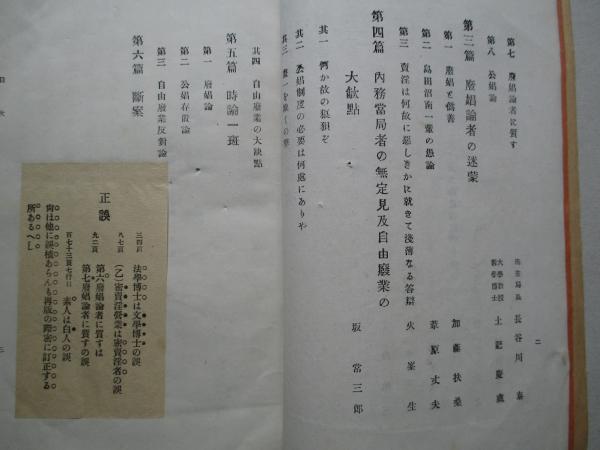 二
第七 廢娼論者に質す
衛生局長 長谷川 泰
第八 公娼論
大學敎授 醫學博士 土肥慶藏
第三篇 廢娼論者の迷蒙
第一 廢娼と僞善
加藤扶桑
第二 島田沼南一輩の愚論
葦原丈夫
第三 賣淫は何故に惡しきかに就きて淺薄なる答辯
火峯生
第四篇 內務當局者の無定見及自由廢業の
大缺點
坂 常三郎
其一 何が故の狼狽ぞ
其二 公娼制度の必要は何處にありや
其三
其四 自由廢業の大缺點
第五篇 時論一斑
第一 廢娼論
第二 公娼存置論
第三 自由廢業反對論
第六篇 斷案
目次
三
正誤
三四頁 法學博士は文學博士の誤
九七頁 (乙)密賣淫營業は密賣淫者の誤
九二頁 第六廢娼論者に質すは
第七廢娼論者に質すの誤
百七十三頁七行目 素人は白人の誤
尙ほ他に誤植あらんも再版の際密に訂正する
所あるへし